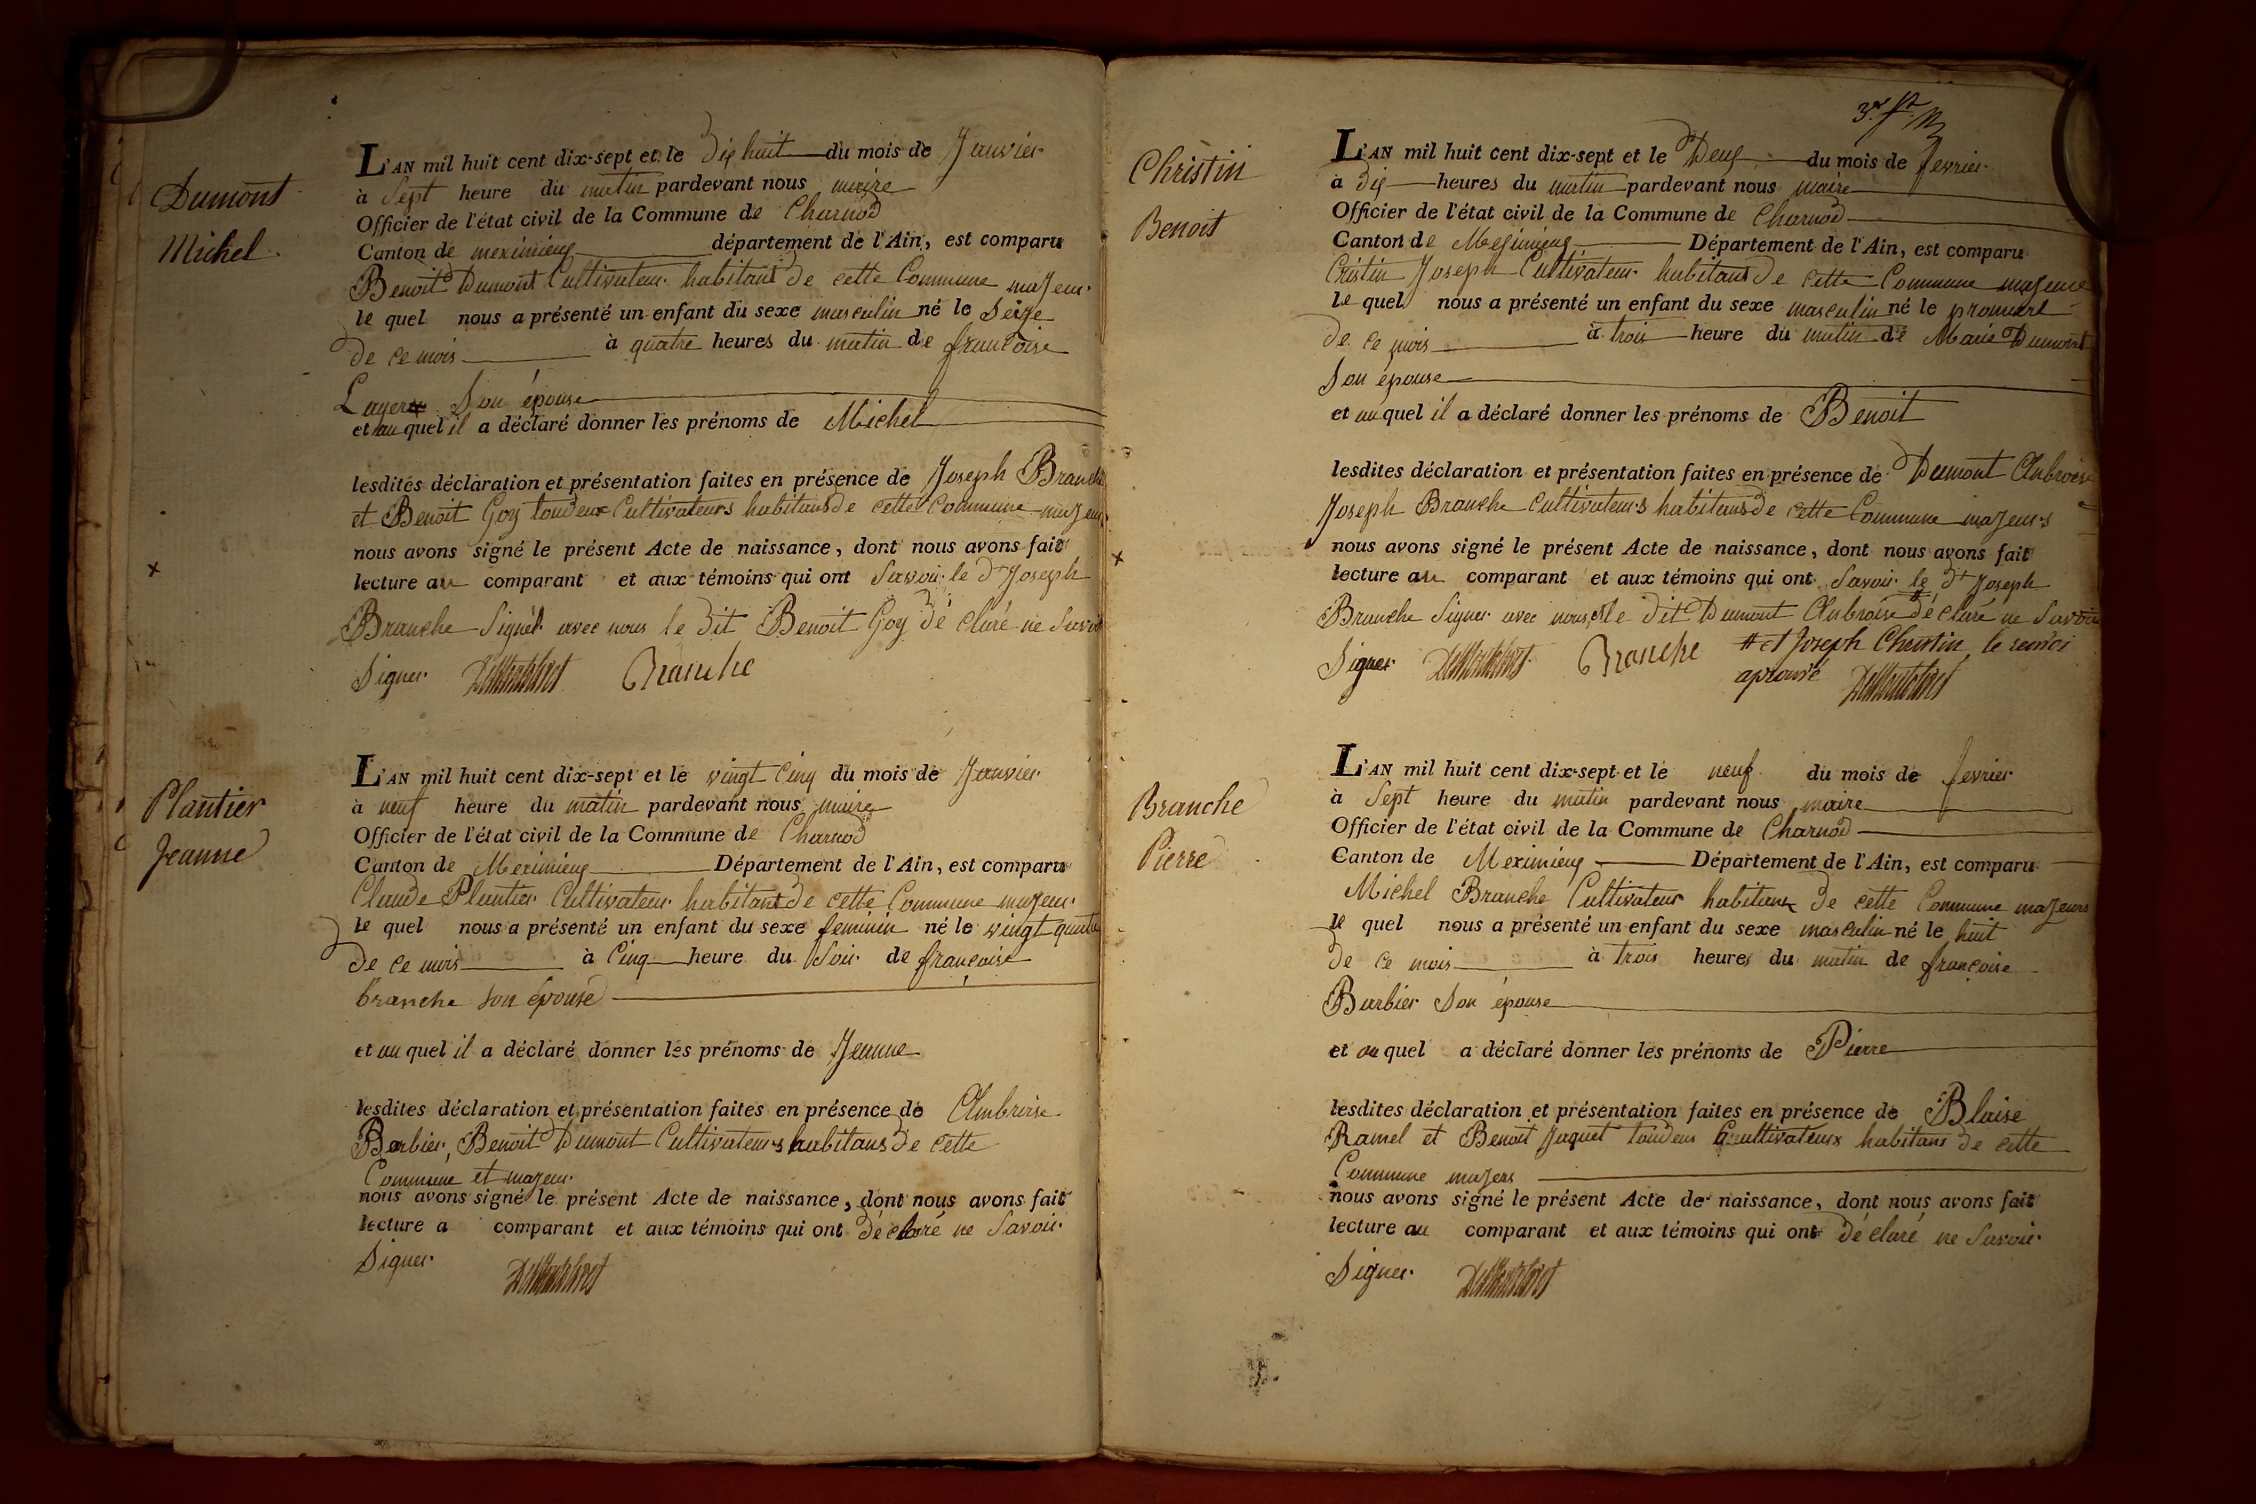 Dumont
Michel
L'AN mil huit cent dix-sept et le dix huit du mois de Janvier
à Sept heure du matin pardevant nous maire
Officier de l'état civil de la Commune de Charnod
Canton de meximieux département de l'Ain, est comparu
Benoit Dumont Cultivateur habitant de cette Commune majeur
le quel nous a présenté un enfant du sexe masculin né le Seize
de ce mois à quatre heures du matin de francoise
Son épouse
et au quel il a déclaré donner les prénoms de Michel
lesdites déclaration et présentation faites en présence de Joseph Branche
et Benoit Goy toudeux Cultivateurs habitans de cette Commune majeurs
nous avons signé le présent Acte de naissance, dont nous avons fait
lecture au comparant et aux témoins qui ont Savoir le dt Joseph
Branche Signér avec nous le dit Benoit Goy dé claré ne Savoir
Signer Branche
Plantier
Jeanne
L'AN mil huit cent dix-sept et le vingt Cinq du mois de Janvier
à neuf heure du matin pardevant nous maire
Officier de l'état civil de la Commune de Charnod
Canton de Meximieux Département de l'Ain, est comparu
Claude Plantier Cultivateur habitant de cette Commune majeur
le quel nous a présenté un enfant du sexe feminin né le vingt quatre
de ce mois à Cinq heure du Soir de françoise
branche son épouse
et au quel il a déclaré donner les prénoms de Jeanne
lesdites déclaration et présentation faites en présence de Ambroise
Barbier, Benoit Dumont Cultivateurs habitans de cette
Commune et majeur
nous avons signé le présent Acte de naissance, dont nous avons fait
lecture a comparant et aux témoins qui ont dé claré ne Savoir
Signer
Christin
Benoit
L'AN mil huit cent dix-sept et le Deux du mois de fevrier
à dix heures du matin pardevant nous maire
Officier de l'état civil de la Commune de Charnod
Canton de Meximieux Département de l'Ain, est comparu
Cristin Joseph Cultivateur habitant de cette Commune majeure
le quel nous a présenté un enfant du sexe masculin né le
de ce mois à trois heure du matin de Marie Dumont
Son épouse
et au quel il a déclaré donner les prénoms de Benoit
lesdites déclaration et présentation faites en présence de Dumont Ambroise
Joseph Branche Cultivateurs habitans de cette Commune majeurs
nous avons signé le présent Acte de naissance, dont nous avons fait
lecture au comparant et aux témoins qui ont Savoir le dt Joseph
Branche Signer avec nous, le dit Dumont Ambroise # dé claré ne Savoir
Signer Branche # et Joseph Christin le renvoi
aprouvé
Branche
Pierre
L'AN mil huit cent dix-sept et le neuf du mois de fevrier
à Sept heure du matin pardevant nous maire
Officier de l'état civil de la Commune de Charnod
Canton de Meximieux Département de l'Ain, est comparu
Michel Branche Cultivateur habitant de cette Commune majeurs
le quel nous a présenté un enfant du sexe masculin né le huit
de ce mois à trois heures du matin de françoise
Barbier Son épouse
et au quel a déclaré donner les prénoms de Pierre
lesdites déclaration et présentation faites en présence de Blaise
Ramel et Benoit Jaquet toudeux Cultivateurs habitans de cette
Commune majers
nous avons signé le présent Acte de naissance, dont nous avons fait
lecture au comparant et aux témoins qui ont dé claré ne Savoir
Signer